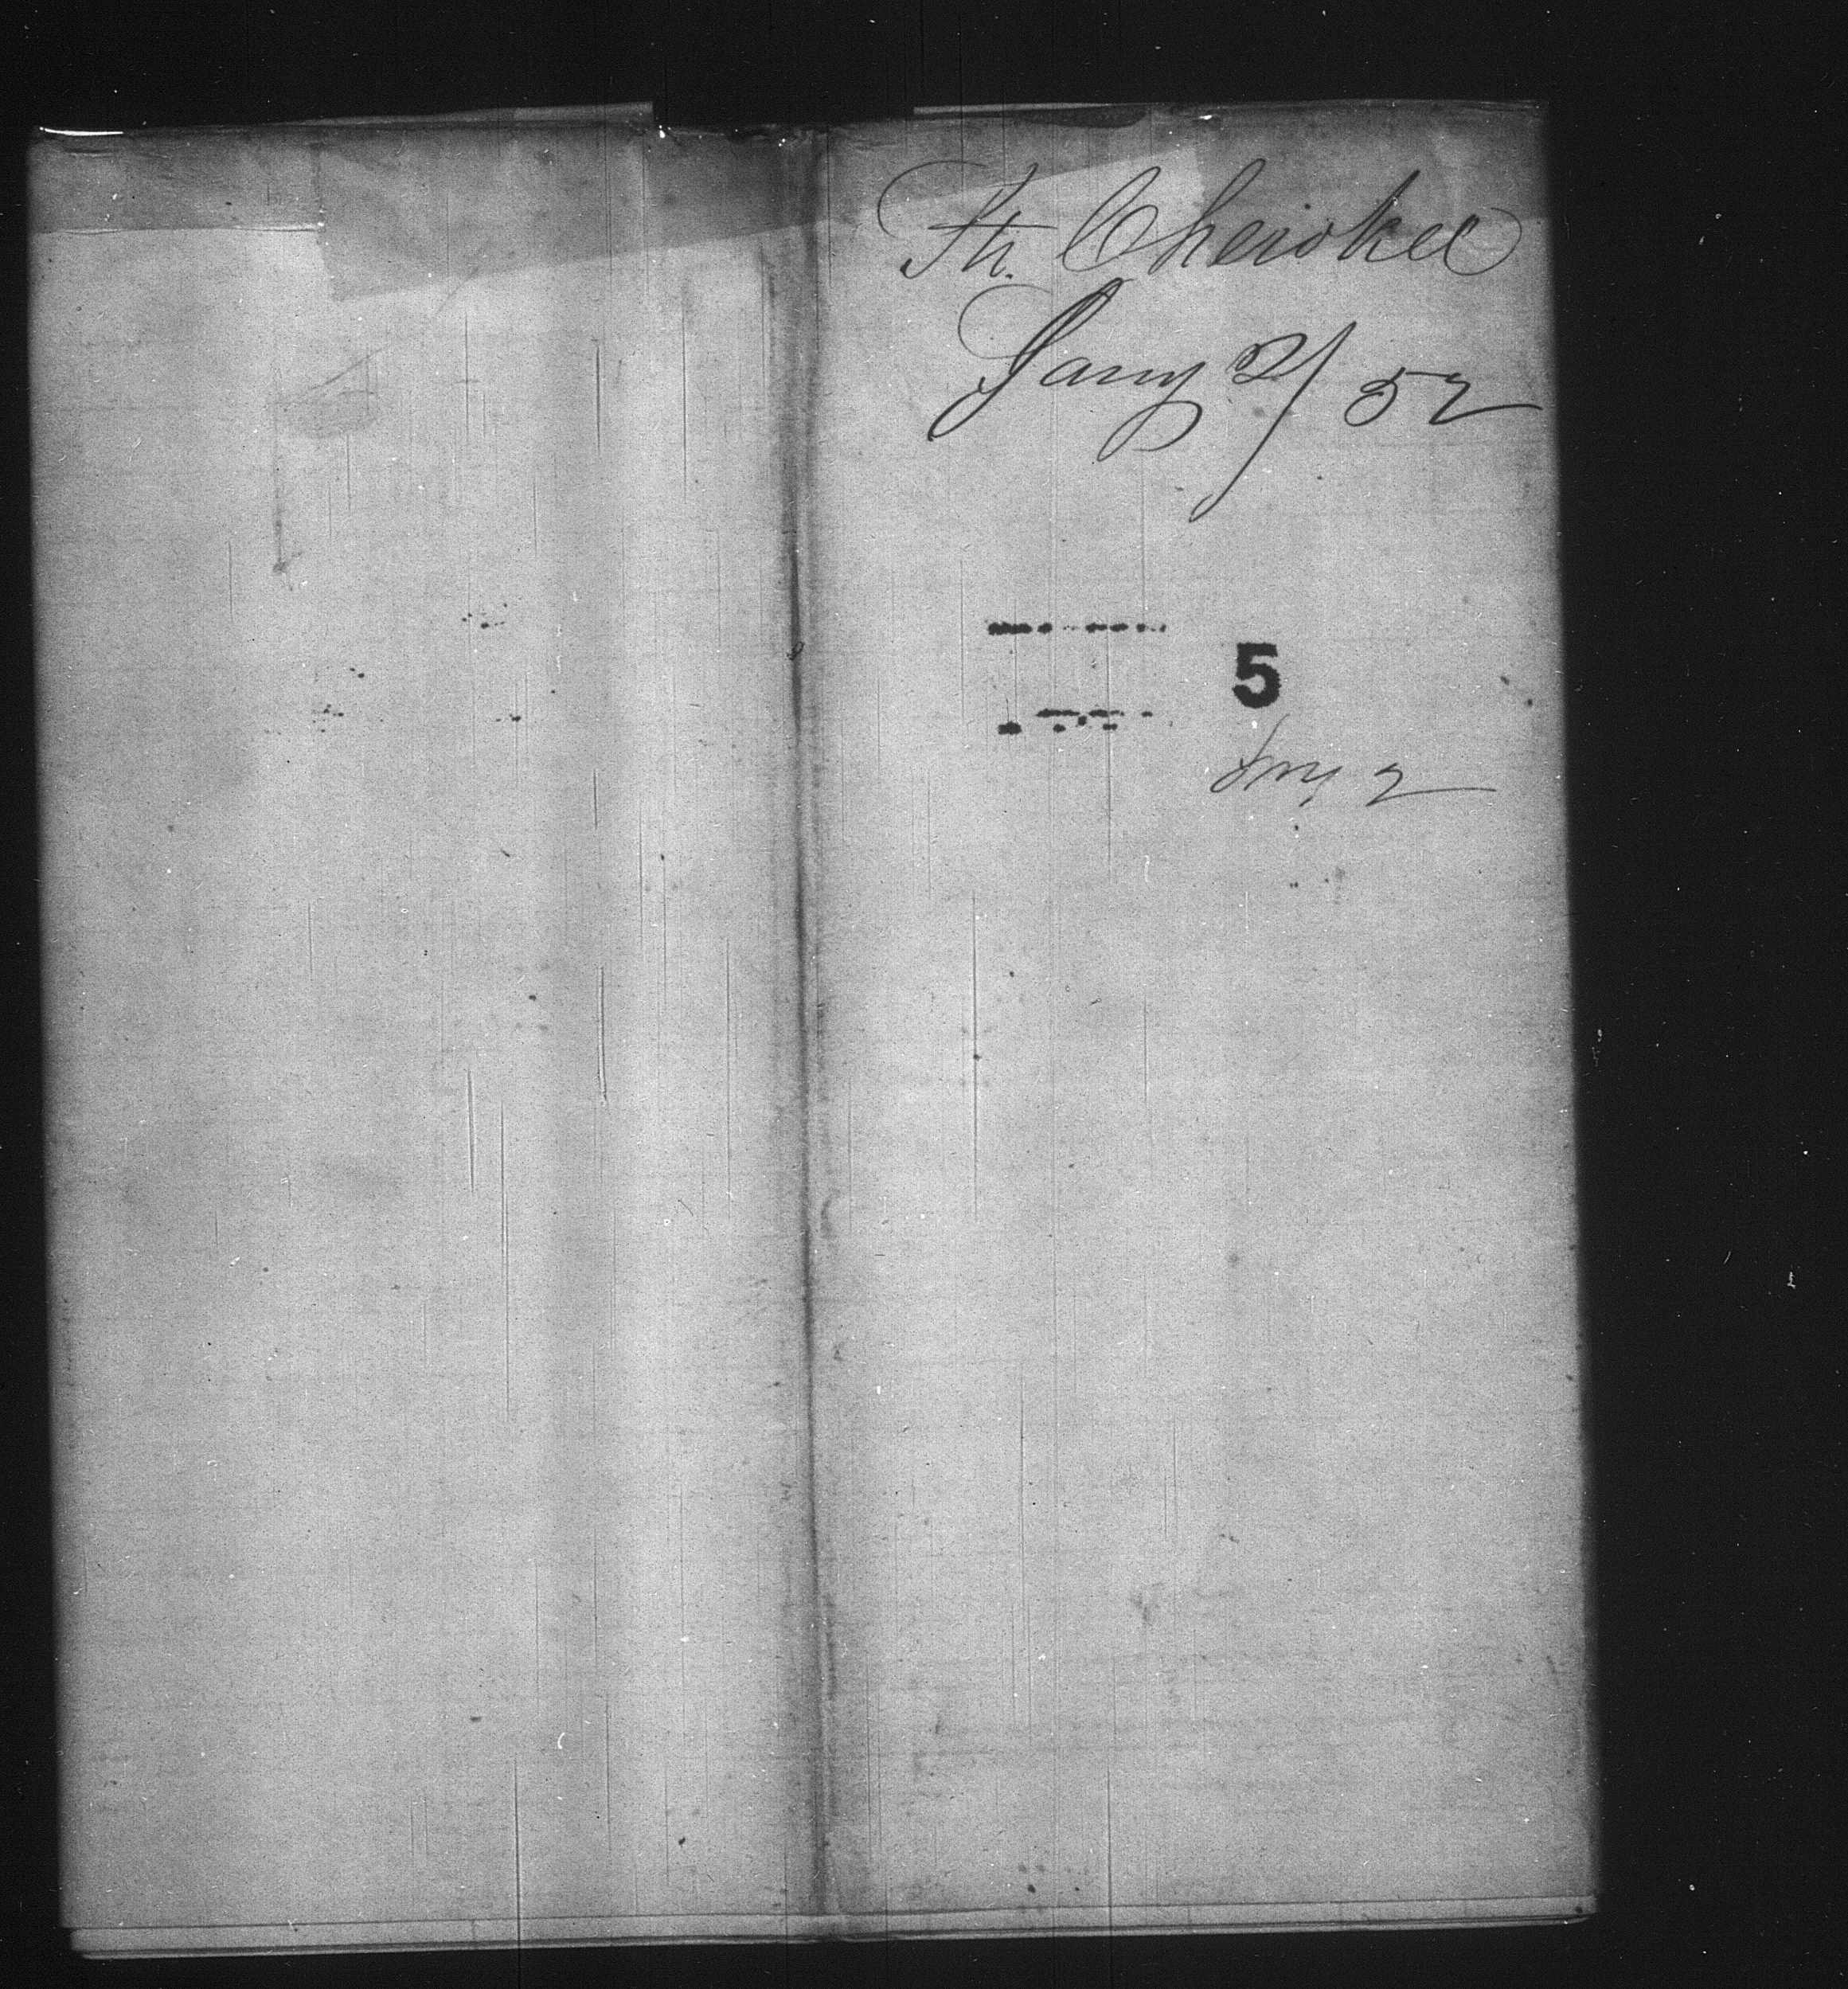 Str. Cherokee
Jany 2/52
5
Jny 2